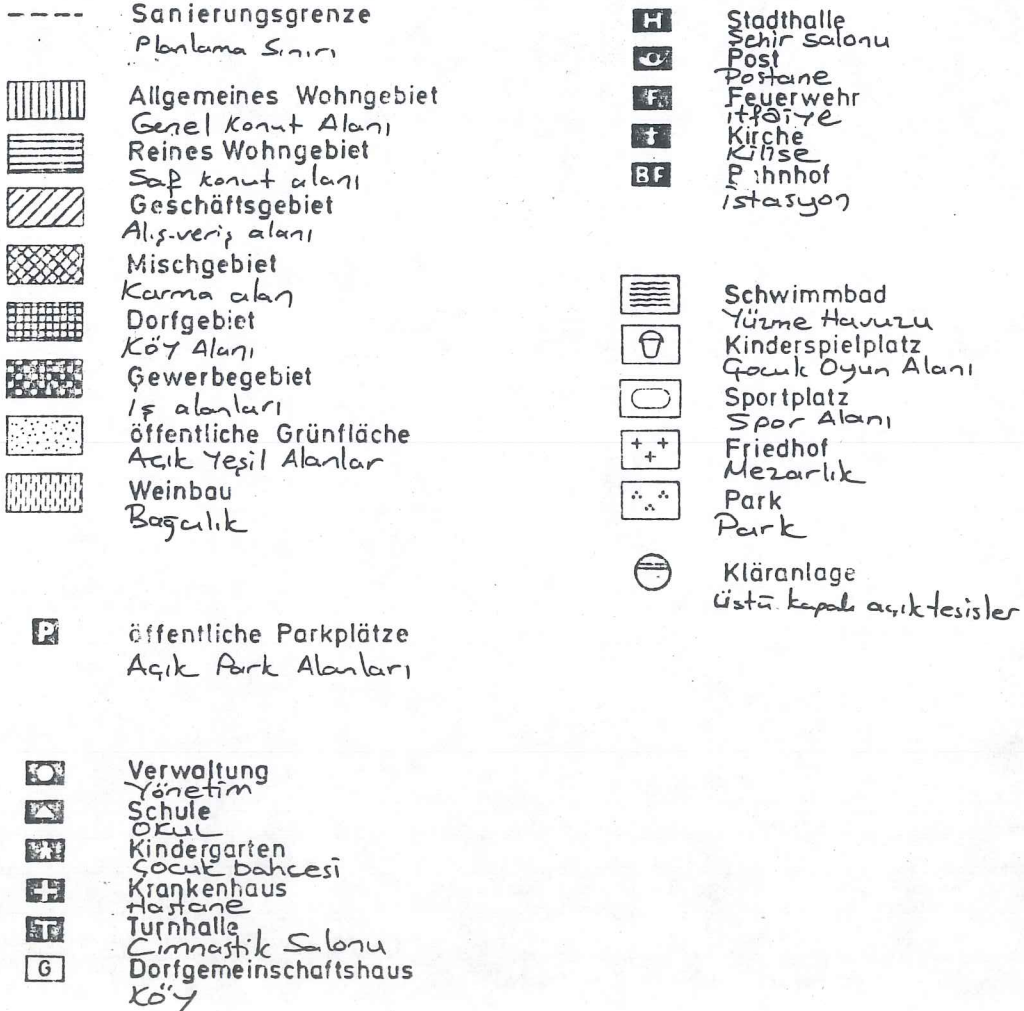 Sanierungsgrenze
Planlama Sınırı
Allgemeines Wohngebiet
Genel Konut Alanı
Reines Wohngebiet
Saf konut alanı
Geschäftsgebiet
Alış-veriş alanı
Mischgebiet
Karma alan
Dorfgebiet
Köy Alanı
Gewerbegebiet
İş alanları
öffentliche Grünfläche
Açık Yeşil Alanlar
Weinbau
Bağcılık
P öffentliche Parkplätze
Açık Park Alanları
Verwaltung
Yönetim
Schule
Okul
Kindergarten
Çocuk bahcesi
Krankenhaus
Hastane
T Turnhalle
Cimnastik Salonu
G Dorfgemeinschaftshaus
Köy
H Stadthalle
Şehir Salonu
Post
Postane
F Feuerwehr
itfaiye
Kirche
Kilise
BF Bahnhof
istasyon
Schwimmbad
Yüzme Havuzu
Kinderspielplatz
Çocuk Oyun Alanı
Sportplatz
Spor Alanı
Friedhof
Mezarlık
Park
Park
Kläranlage
üstü kapalı açık tesisler